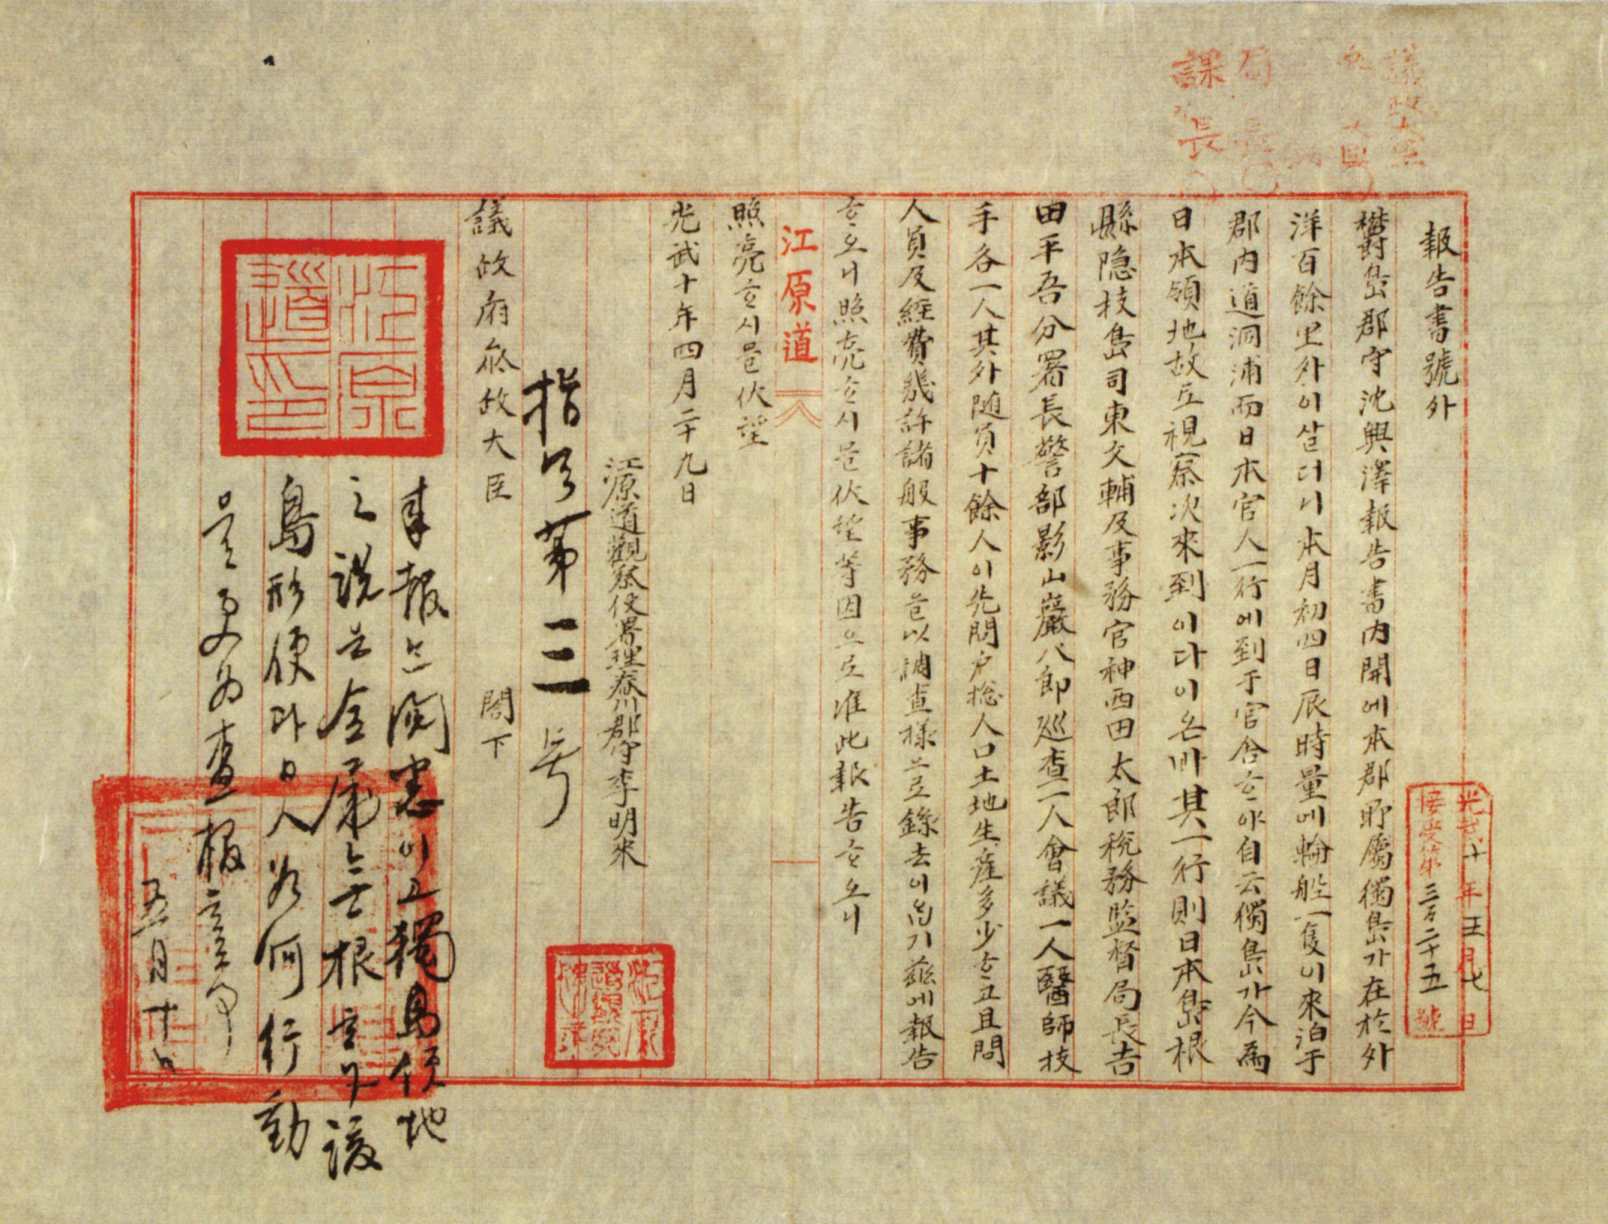 報告書號外
欝島郡守沈興澤報告書內開에本郡所屬獨島가在於外
洋百餘里外이살더니本月初四日辰時量에輪船一隻이來泊于
郡內道洞浦而日本官人一行에到于官舍ᄒᆞ야自云獨島가今爲
日本領地故로視察次來到이다이온바其一行則日本島根
縣隱技島司東文輔及事務官神西田太郎稅務監督局長吉
田平吾分署長警部影山巖八郎巡查一人會議一人醫師技
手各一人其外隨員十餘人이先問戶摠人口土地生産多少ᄒᆞ고且問
人員及經費幾許諸般事務을以調査樣으로錄去이ᄋᆞᆸ기玆에報告
ᄒᆞ오니照亮ᄒᆞ시믈伏望等因으로准此報告ᄒᆞ오니
江原道
照亮ᄒᆞ시믈伏望
光武十年四月二十九日
江原道觀察使署理春川郡守李明來
指令第三号
議政府叅政大臣 閤下
來報는閱悉이고獨島領地
之說은全屬無根ᄒᆞ나該
島形便과日人如何行動
을更爲査報ᄒᆞᆯ事
五月十日
光武十年五月七日
接受第三百二十五號
議政大臣
局長
課長
江原道印